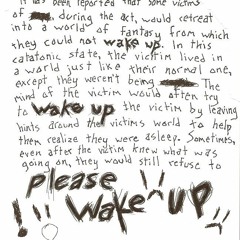 It has been reported that some victims
of during the act, would retreat
into a world of fantasy from which
they could not wake up. In this
catatonic state, the victim lived in
a world just like their normal one,
except they weren't being The
mind of the victim would often try
to wake up the victim by leaving
hints around the victims world to help
them realize they were asleep. Sometimes,
even after the victim knew what was
going on, they would still refuse to
Please
wake up
!!